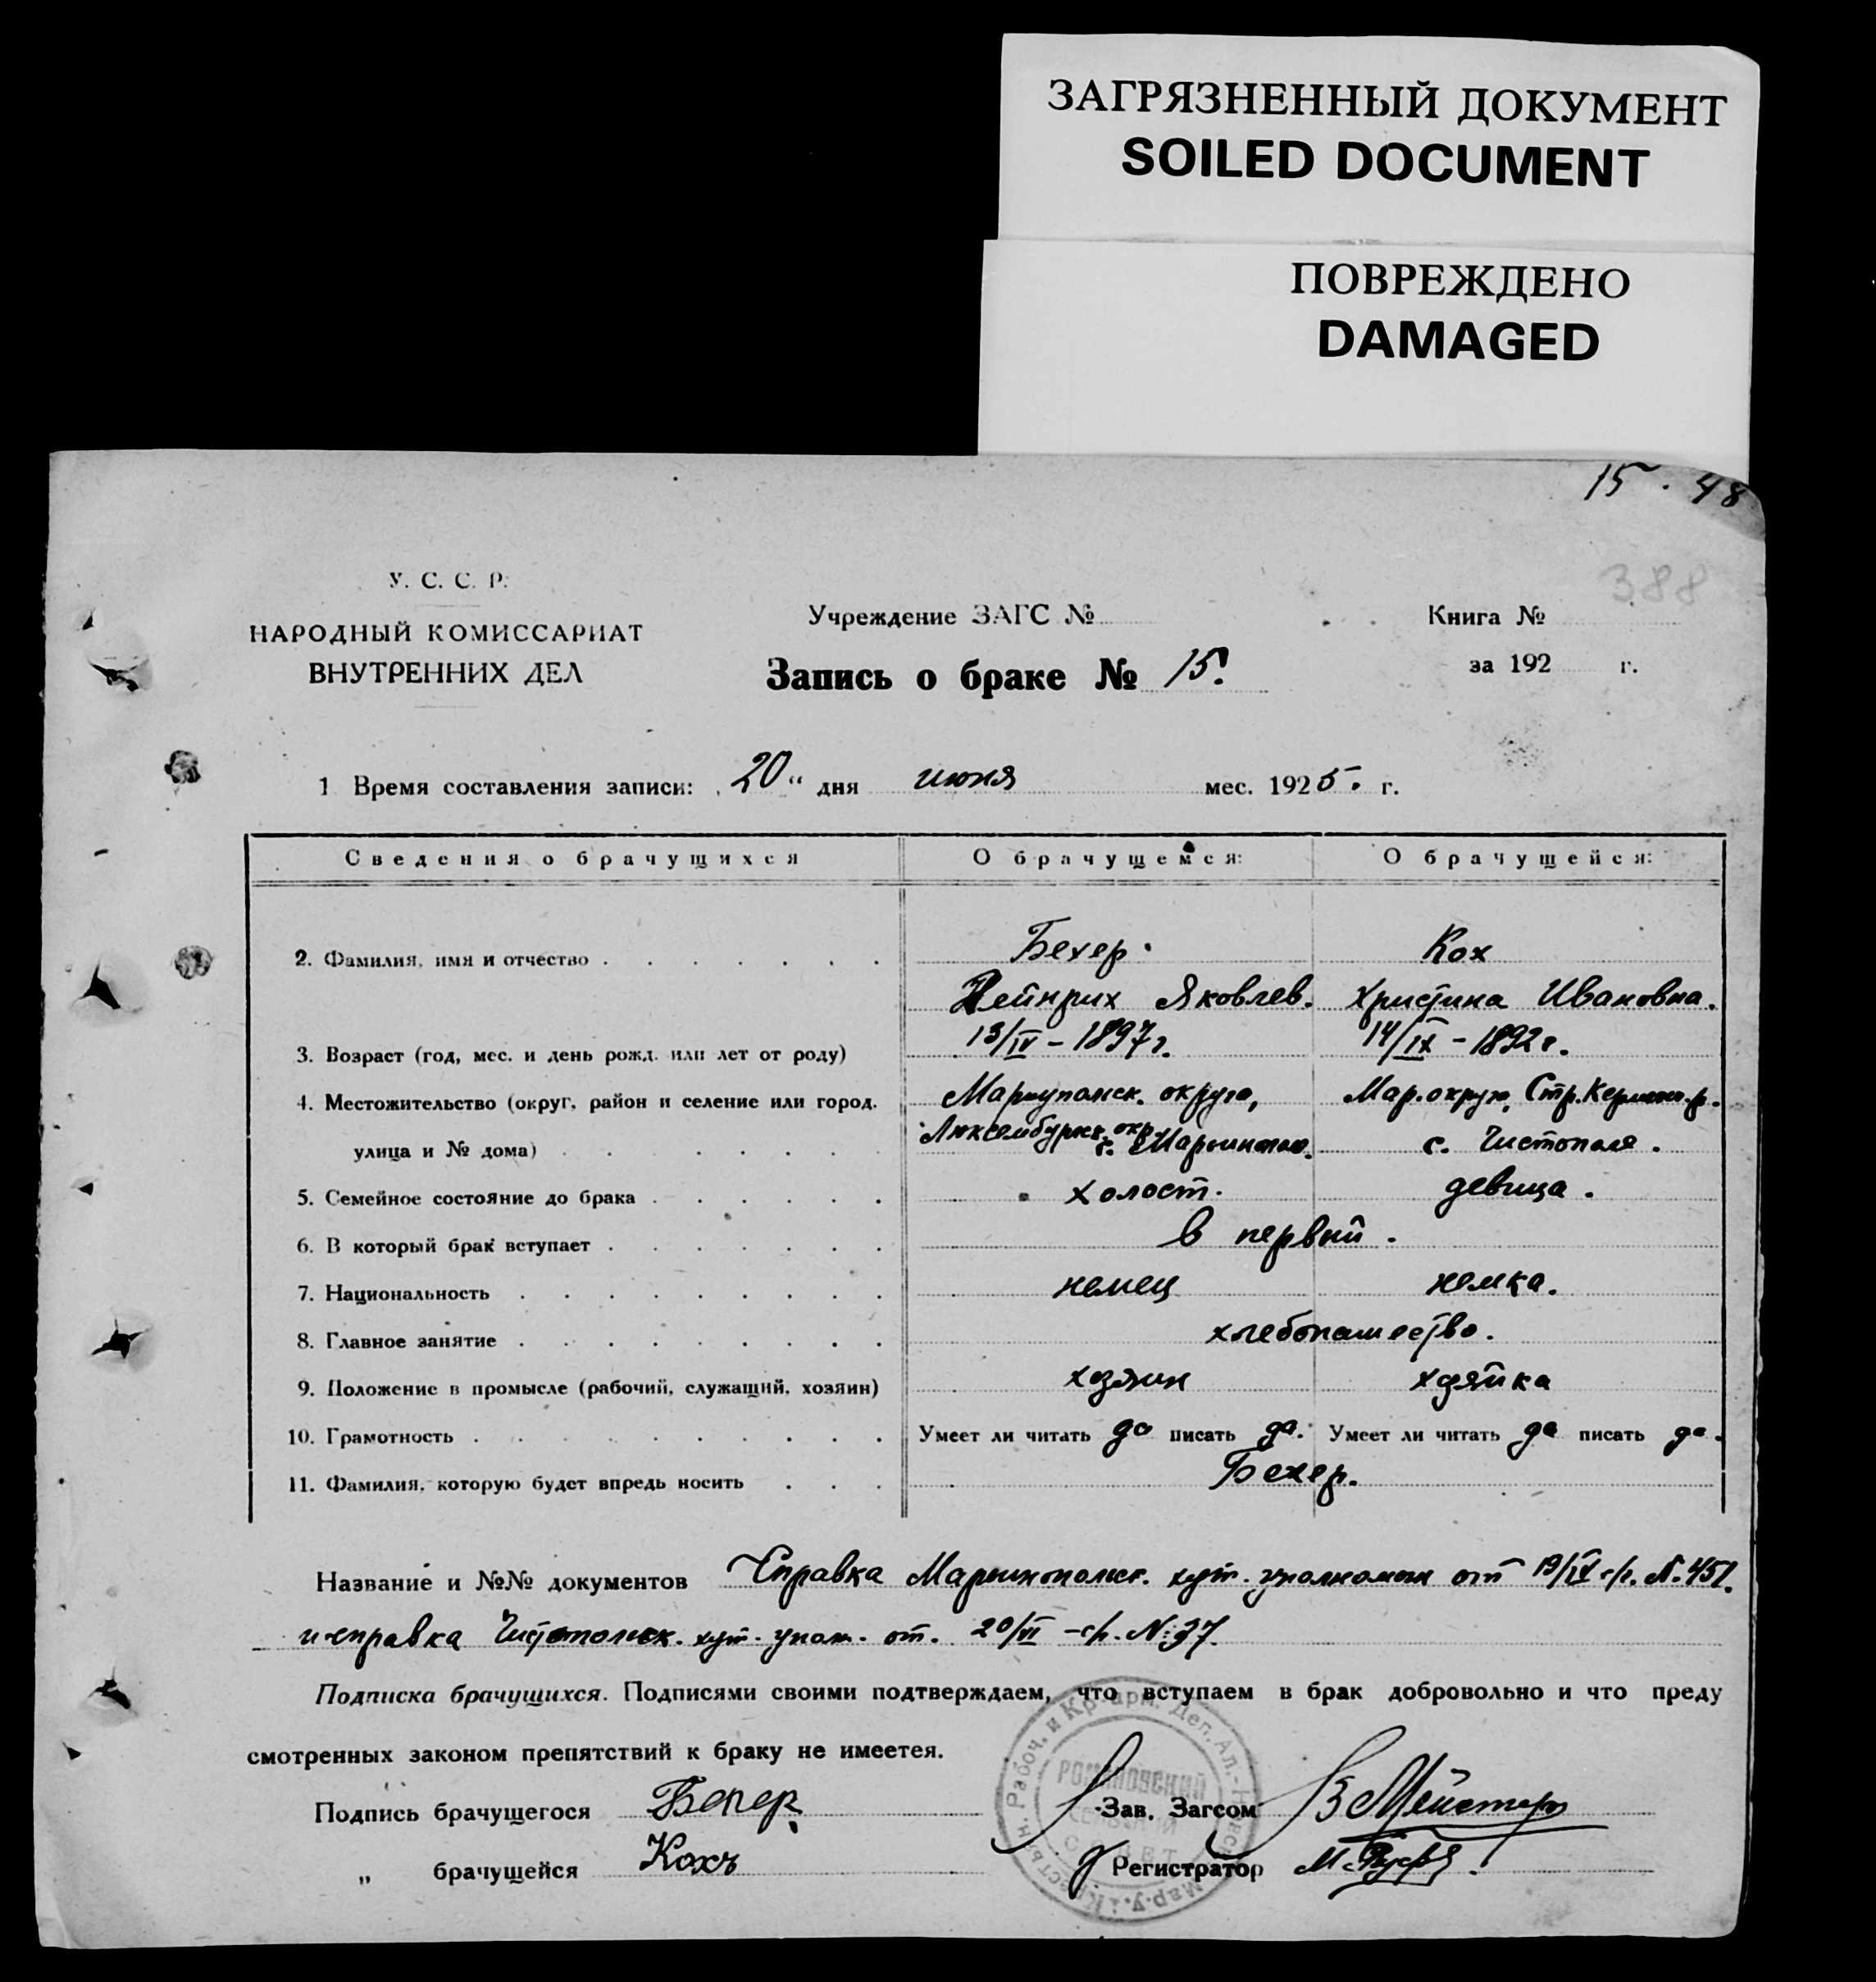 ЗАГРЯЗНЕННЫЙ ДОКУМЕНТ
SOILED DOCUMENT
ПОВРЕЖДЕНО
DAMAGED
15. 48
388
У. С. С. Р.
НАРОДНЫЙ КОМИССАРИАТ
ВНУТРЕННИХ ДЕЛ
Учреждение ЗАГС №
Запись о браке № 15.
Книга №
за 192 г.
1 Время составления записи: 20 " дня июня мес. 1925. г.
Сведения о брачущихся О брачущемся: О брачущейся:
2. Фамилия, имя и отчество Бехер. Кох
Гейнрих Яковлев. Христина Ивановна.
3. Возраст (год, мес. и день рожд. или лет от роду) 13/IV - 1897 г. 14/IX - 1892 г.
4. Местожительство (округ, район и селение или город, Мариупольск. округа, Мар. округа, Стр. р.
Люксембургск. окр.
улица и № дома) с. Марьинополь. с. Чистополе.
5. Семейное состояние до брака холост. девица.
6. В который брак вступает в первый.
7. Национальность немец немка.
8. Главное занятие хлебопашество.
9. Положение в промысле (рабочий, служащий, хозяин) хозяин хозяйка
10. Грамотность Умеет ли читать да писать да. Умеет ли читать да писать да.
11. Фамилия, которую будет впредь носить Бехер.
Название и №№ документов Справка Марьинопольск. хут. уполномоч от 19/IV с/г. № 451.
и справка Чистопольск. хут. упол. от. 20/VI - с/г. № 37.
Подписка брачущихся. Подписями своими подтверждаем, что вступаем в брак добровольно и что преду
смотренных законом препятствий к браку не имеется.
Подпись брачущегося Бехер
Зав. Загсом В Мейстер
" брачущейся Кохъ
Регистратор М.
РОМАНОВСКИЙ
СЕЛЬСКИЙ
СОВЕТ